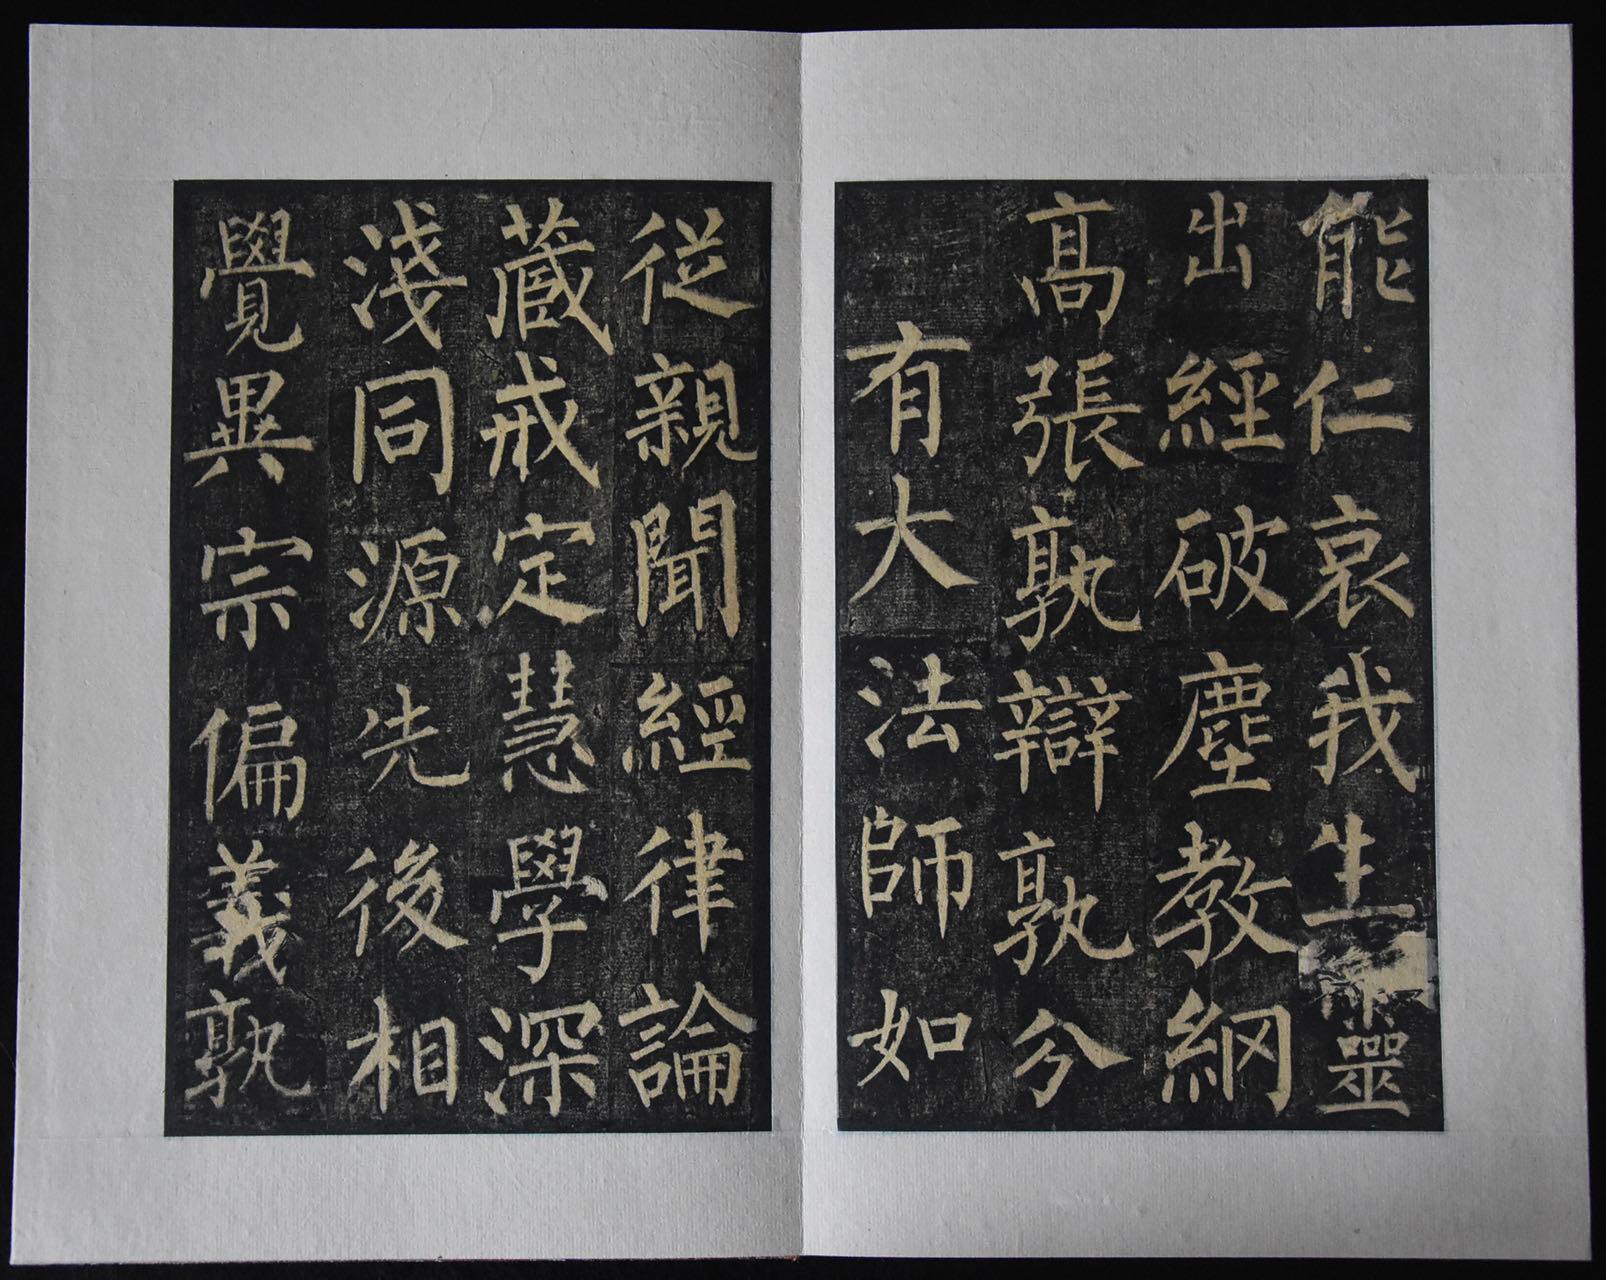 能仁哀我生靈
出經破塵教網
髙張孰辯孰分
有大法師如
從親聞經律論
藏戒定慧學深
淺同源先後相
覺異宗偏義孰